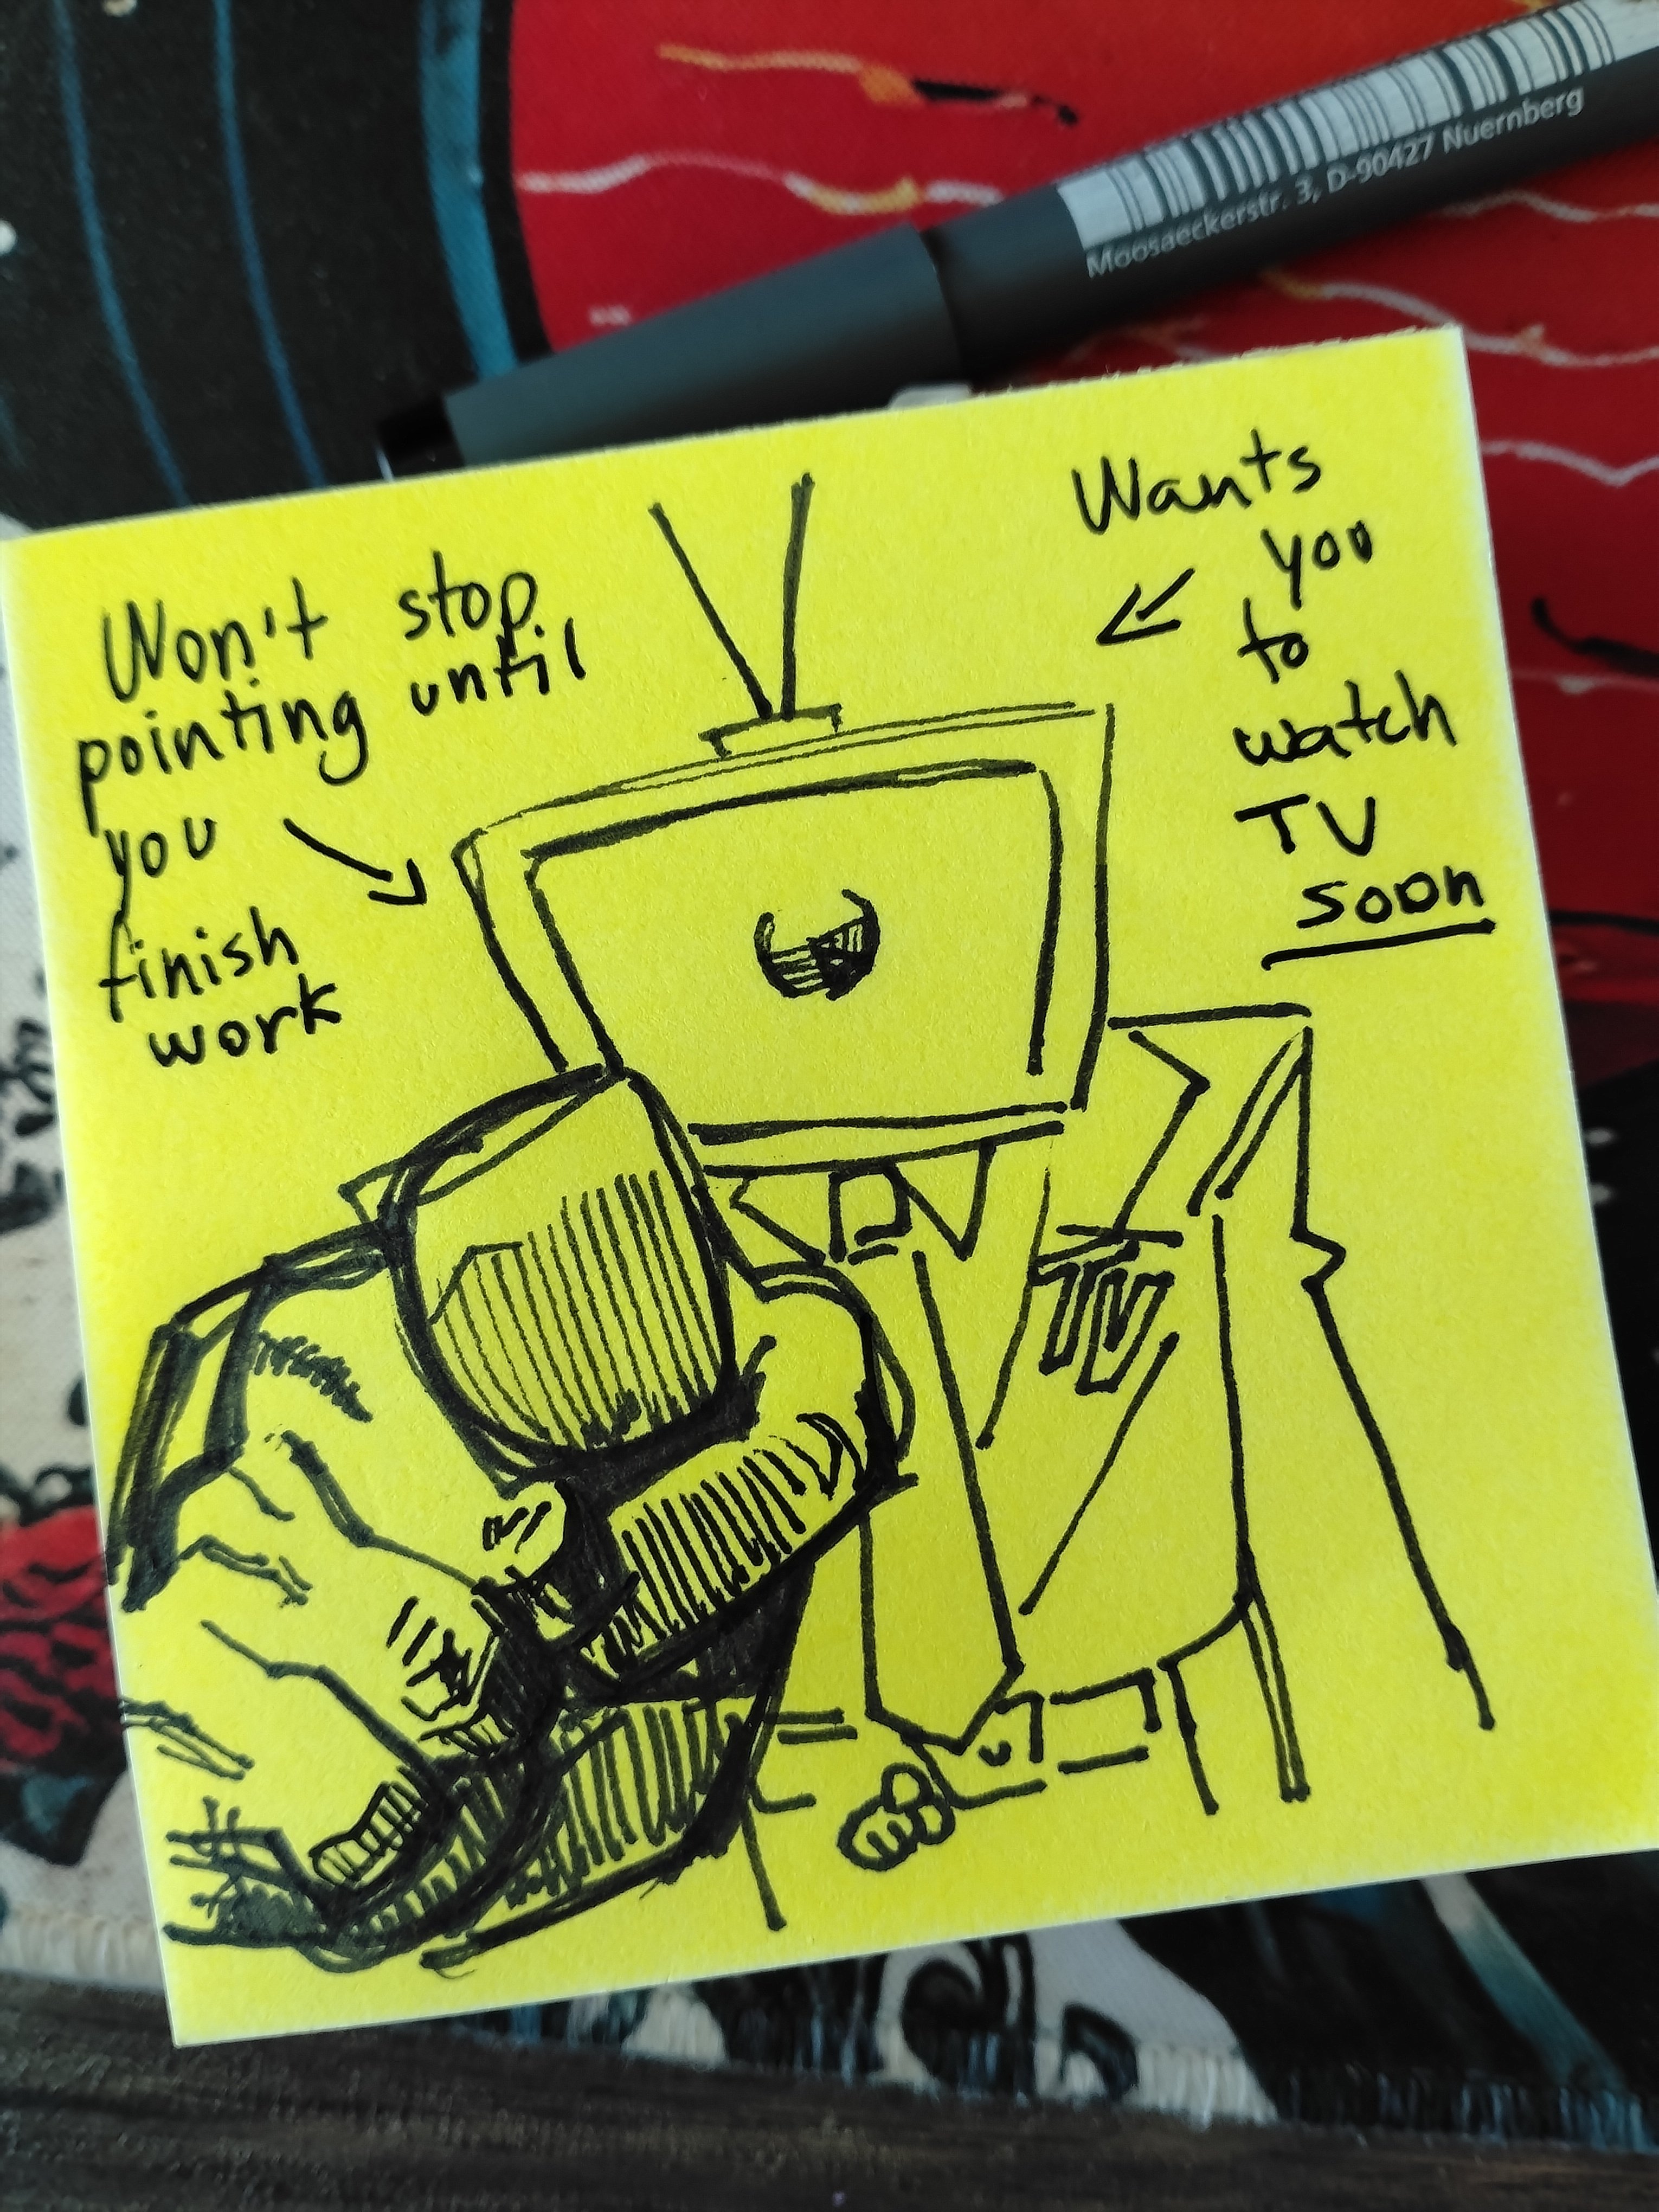 Moosaeckerstr. 3, D-90427 Nuernberg
Won't stop
pointing until
you
finish
work
Wants
you
to
watch
TV
soon
TV